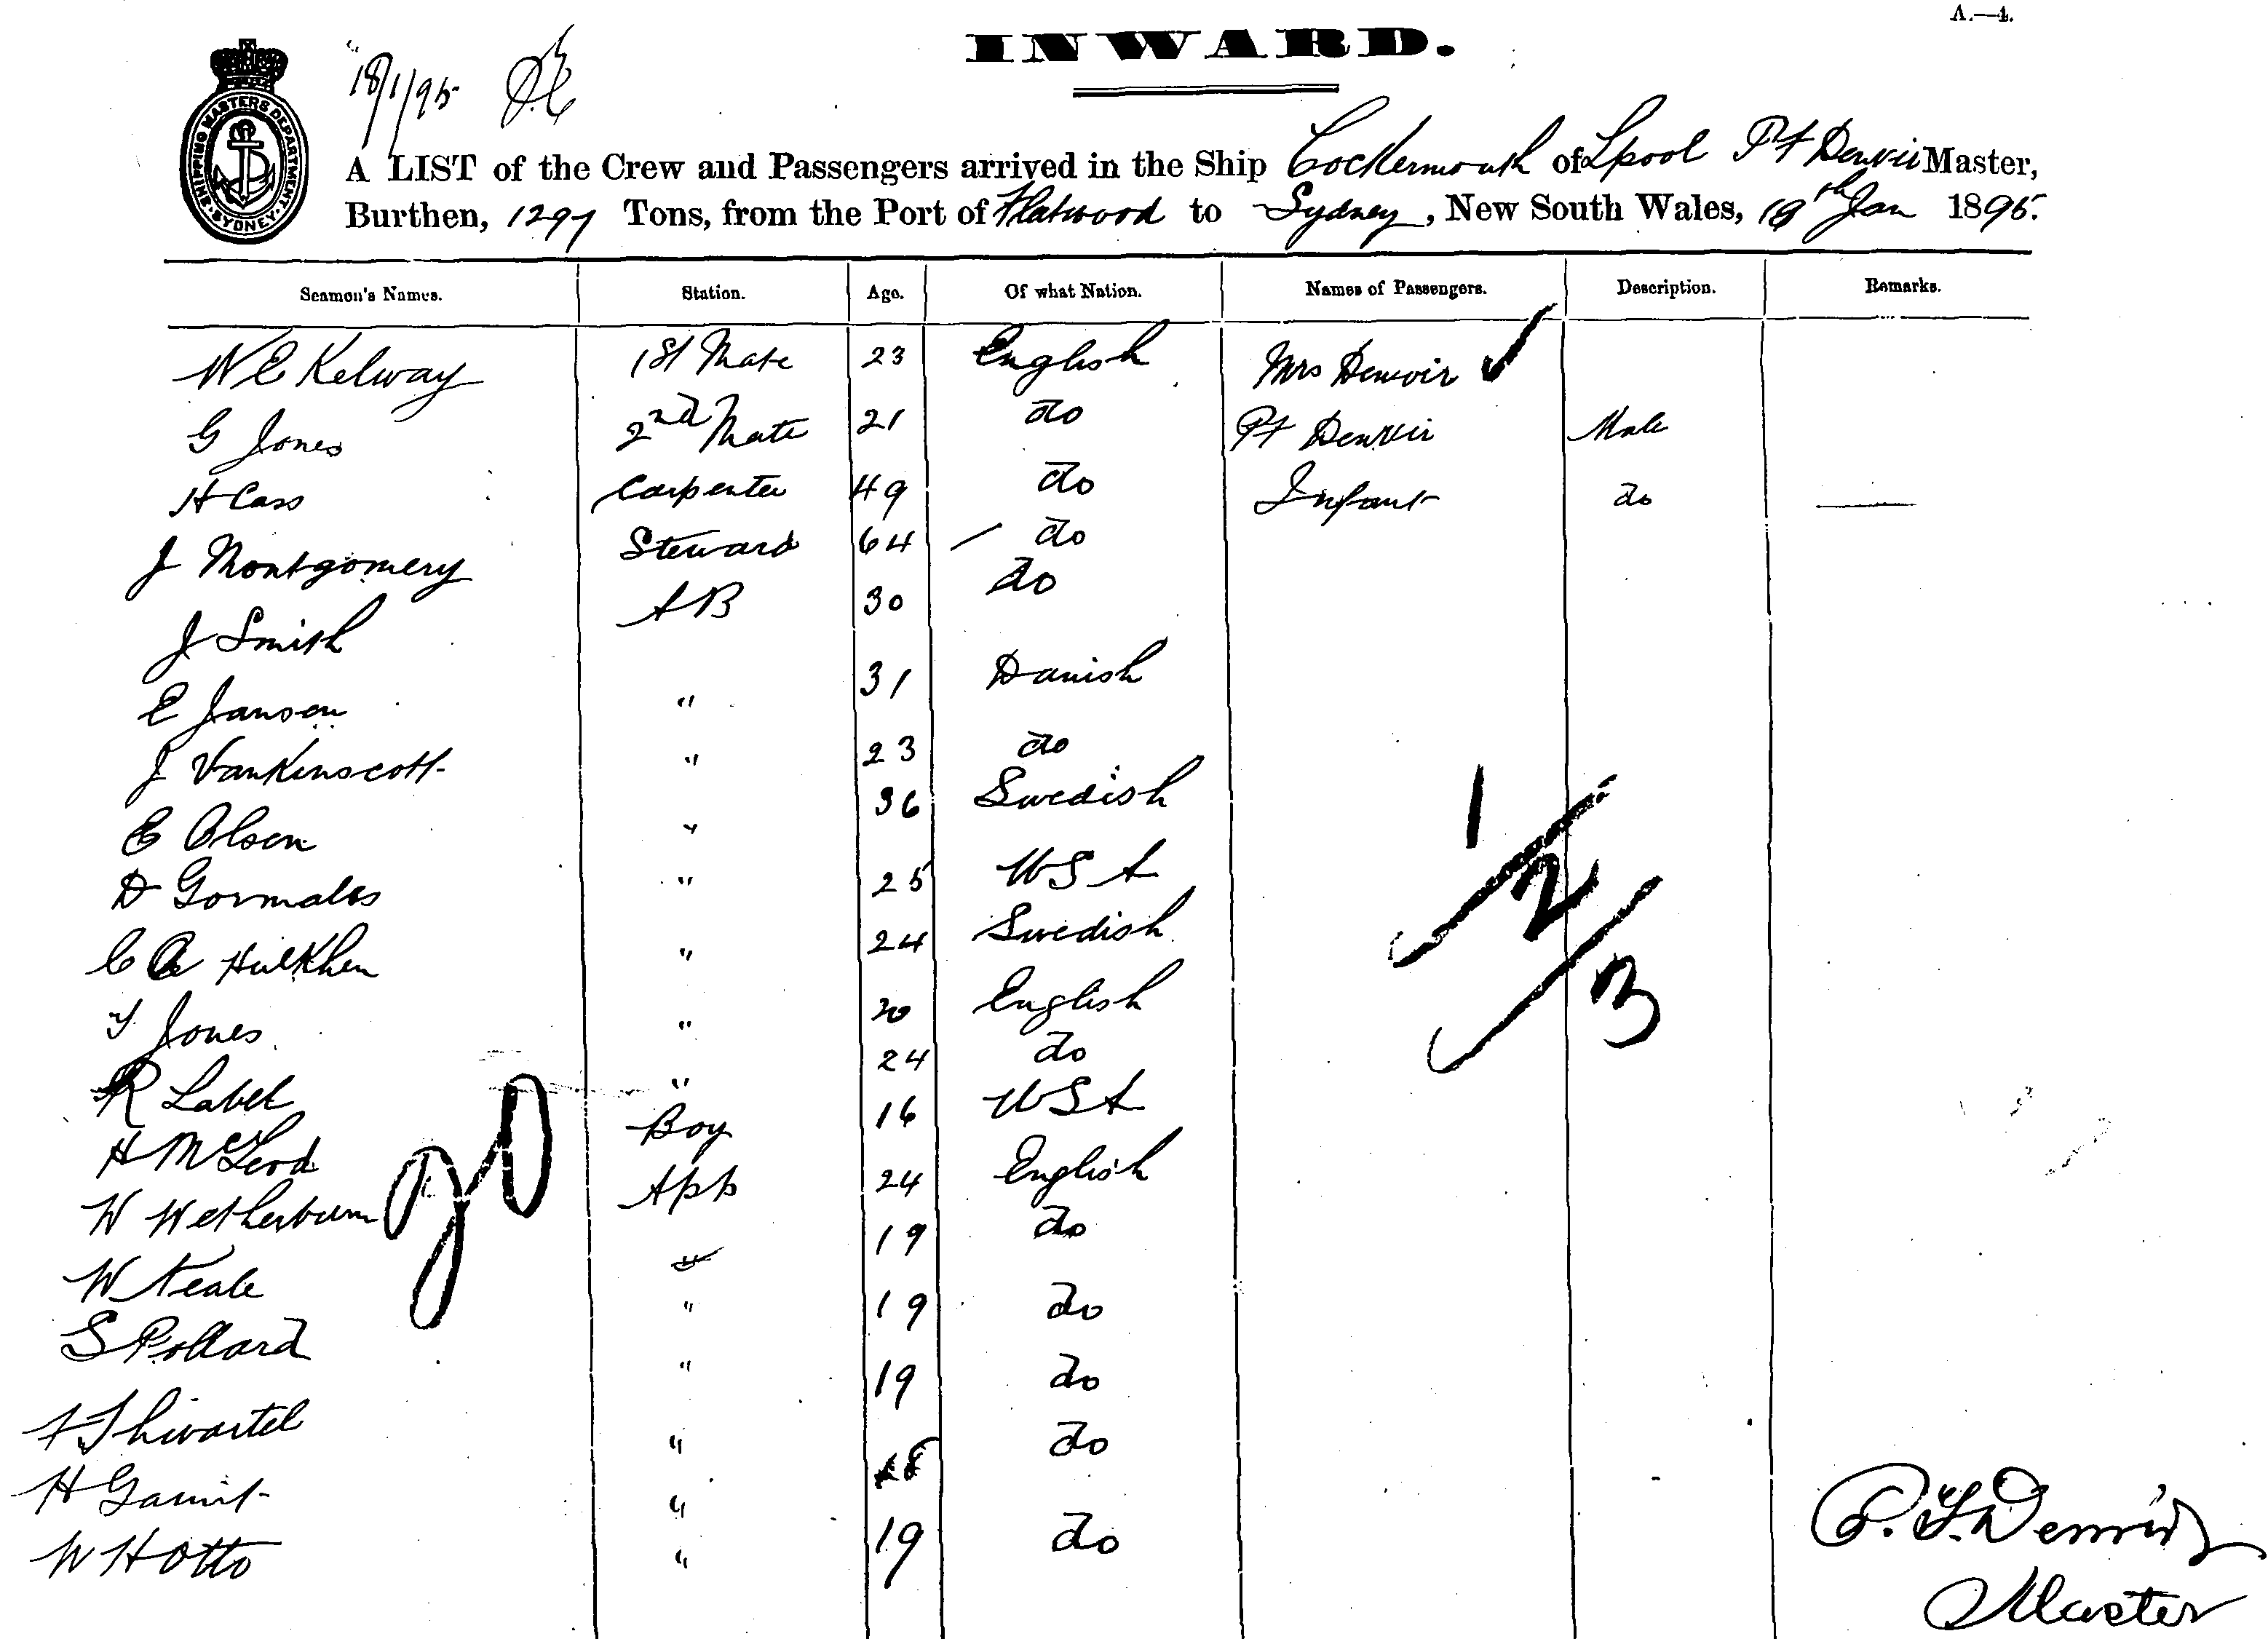 A.—4.
INWARD.
18/1/95
SHIPPING MASTERS DEPARTMENT SYDNEY
A LIST of the Crew and Passengers arrived in the Ship Cockermouth of Lpool P F Denvir Master,
Burthen, 1297 Tons, from the Port of Fleetwood to Sydney, New South Wales, 18th Jan 1895.
Seamen's Names. Station. Age. Of what Nation. Names of Passengers. Description. Remarks.
W E Kelway 1st Mate 23 English Mrs Denvir
G Jones 2nd Mate 21 do P F Denvir Male
H Cass Carpenter 49 do Infant do
J Montgomery Steward 64 do
J Smith AB 30 do
E Jansen " 31 Danish
J Vankinscott " 23 do
E Olsen " 36 Swedish
D Gormales " 25 USA
C A Hulkhen " 24 Swedish
T Jones " 20 English
R Label " 24 do
H McLeod Boy 16 USA
W Wetherburn App 24 English
W Neale " 19 do
S Pollard " 19 do
F Shwartel " 19 do
H Gamit " 18 do
W H Otto " 19 do
1
2
3
20
P. F. Denvir
Master